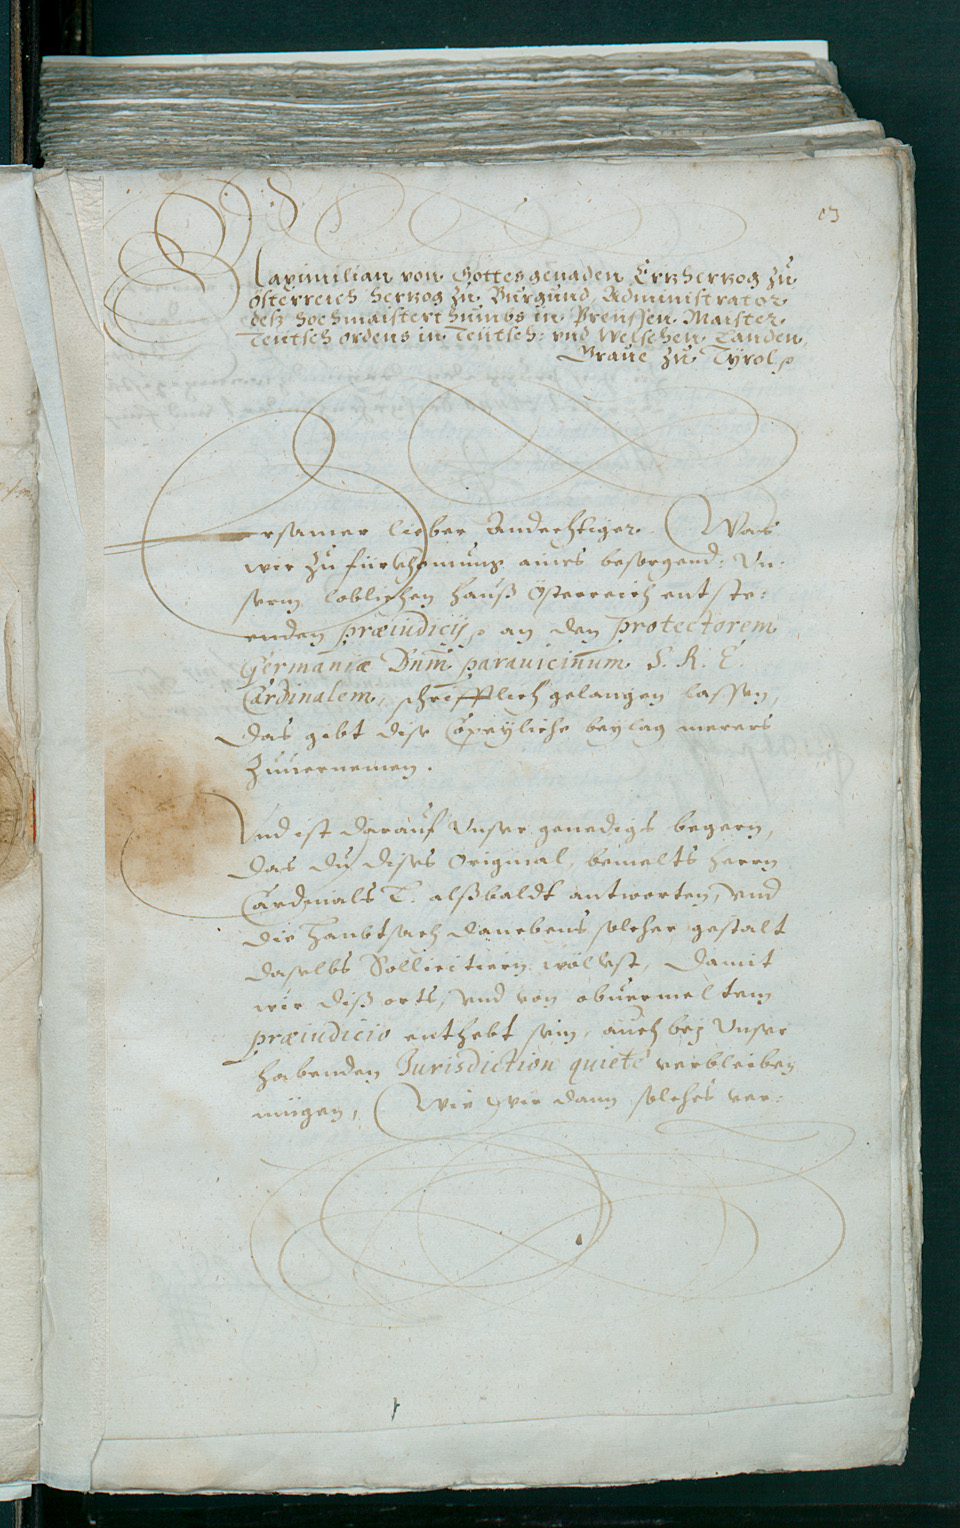 03
Maximilian von Gottes genaden Ertzhertzog zu
österreich hertzog zu Burgund, Administrator
deß hochmaisterthumbs in Preussen Maister
Teutsch ordens in Teutsch: vnd Welschen Landen,
Graue zu Tyrol
Ersamer lieber Andechtiger. Was
wir zu fürkhomung aines besorgend: Vn:
serm loblichen hauß österreich entste:
enden præiudicij, an den protectorem
Germaniæ Dnm̄ parauicinum S. R. E.
Cardinalem, schrifftlich gelangen lassen,
das gibt dise Copeyliche beylag merers
Zuuernemen.
Vnd ist darauf Vnser genedigs begern,
das du dises Original, bemelts herrn
Cardinals L. alßbaldt antworten, vnd
die haubtsach danebens solcher gestalt
daselbs Sollicitiern wöllest, damit
wir diß orts, vnd von obuermeltem
præiudicio enthebt sein, auch bey Vnser
habenden Jurisdiction quietè verbleiben
mügen, Wie wir dann solches ver: